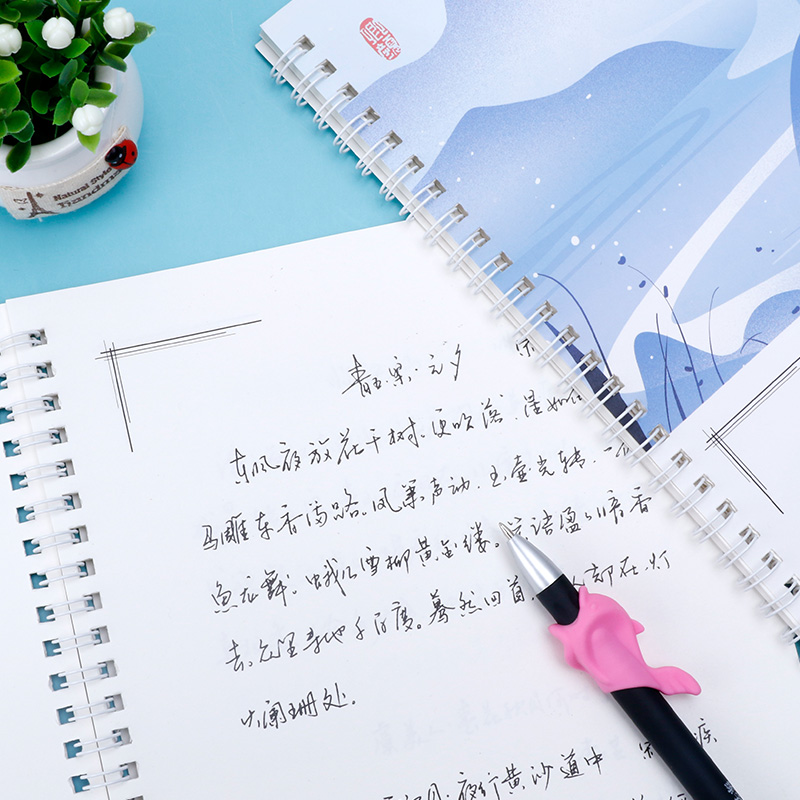 Natural Style
Handma
青玉案·元夕 宋
东风夜放花千树。更吹落、星如
马雕车香满路。凤箫声动,玉壶光转,一
鱼龙舞。蛾儿雪柳黄金缕。笑语盈盈暗香
去。众里寻他千百度。蓦然回首,人却在,灯
火阑珊处。
夜行黄沙道中 宋 疾